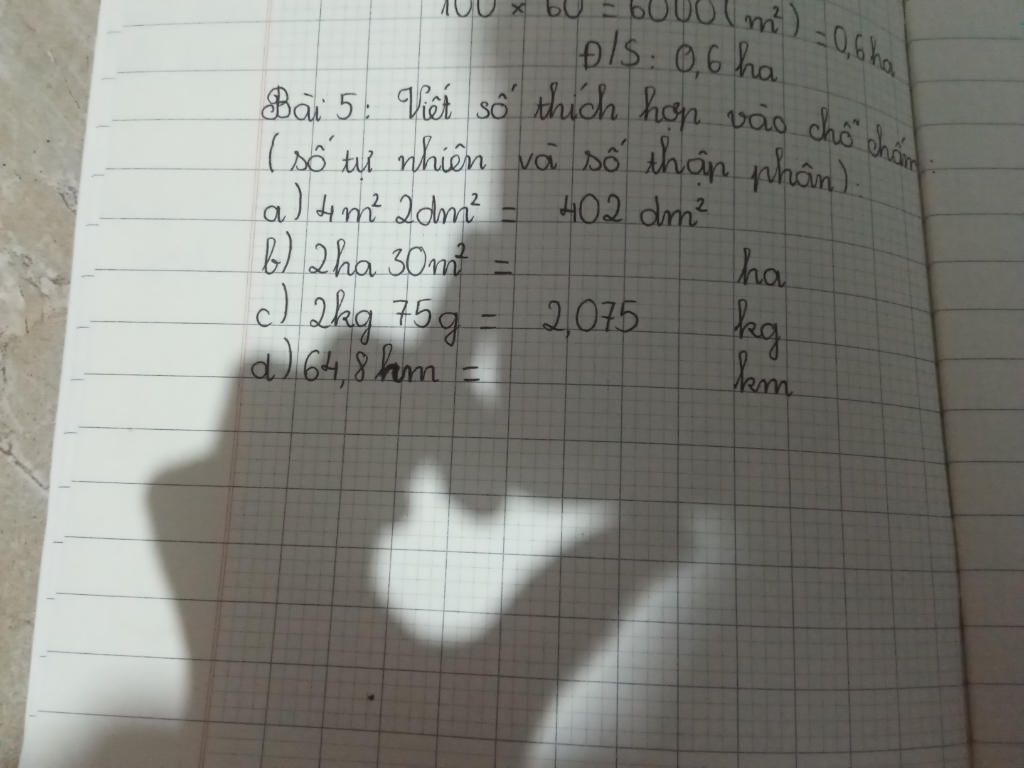 100 × 60 = 6000 (m²) = 0,6 ha
Đ/S: 0,6 ha
Bài 5: Viết số thích hợp vào chỗ chấm.
(số tự nhiên và số thập phân).
a) 4m² 2dm² = 402 dm²
b) 2ha 30m² = ha
c) 2kg 75g = 2,075 kg
d) 64,8hm = km